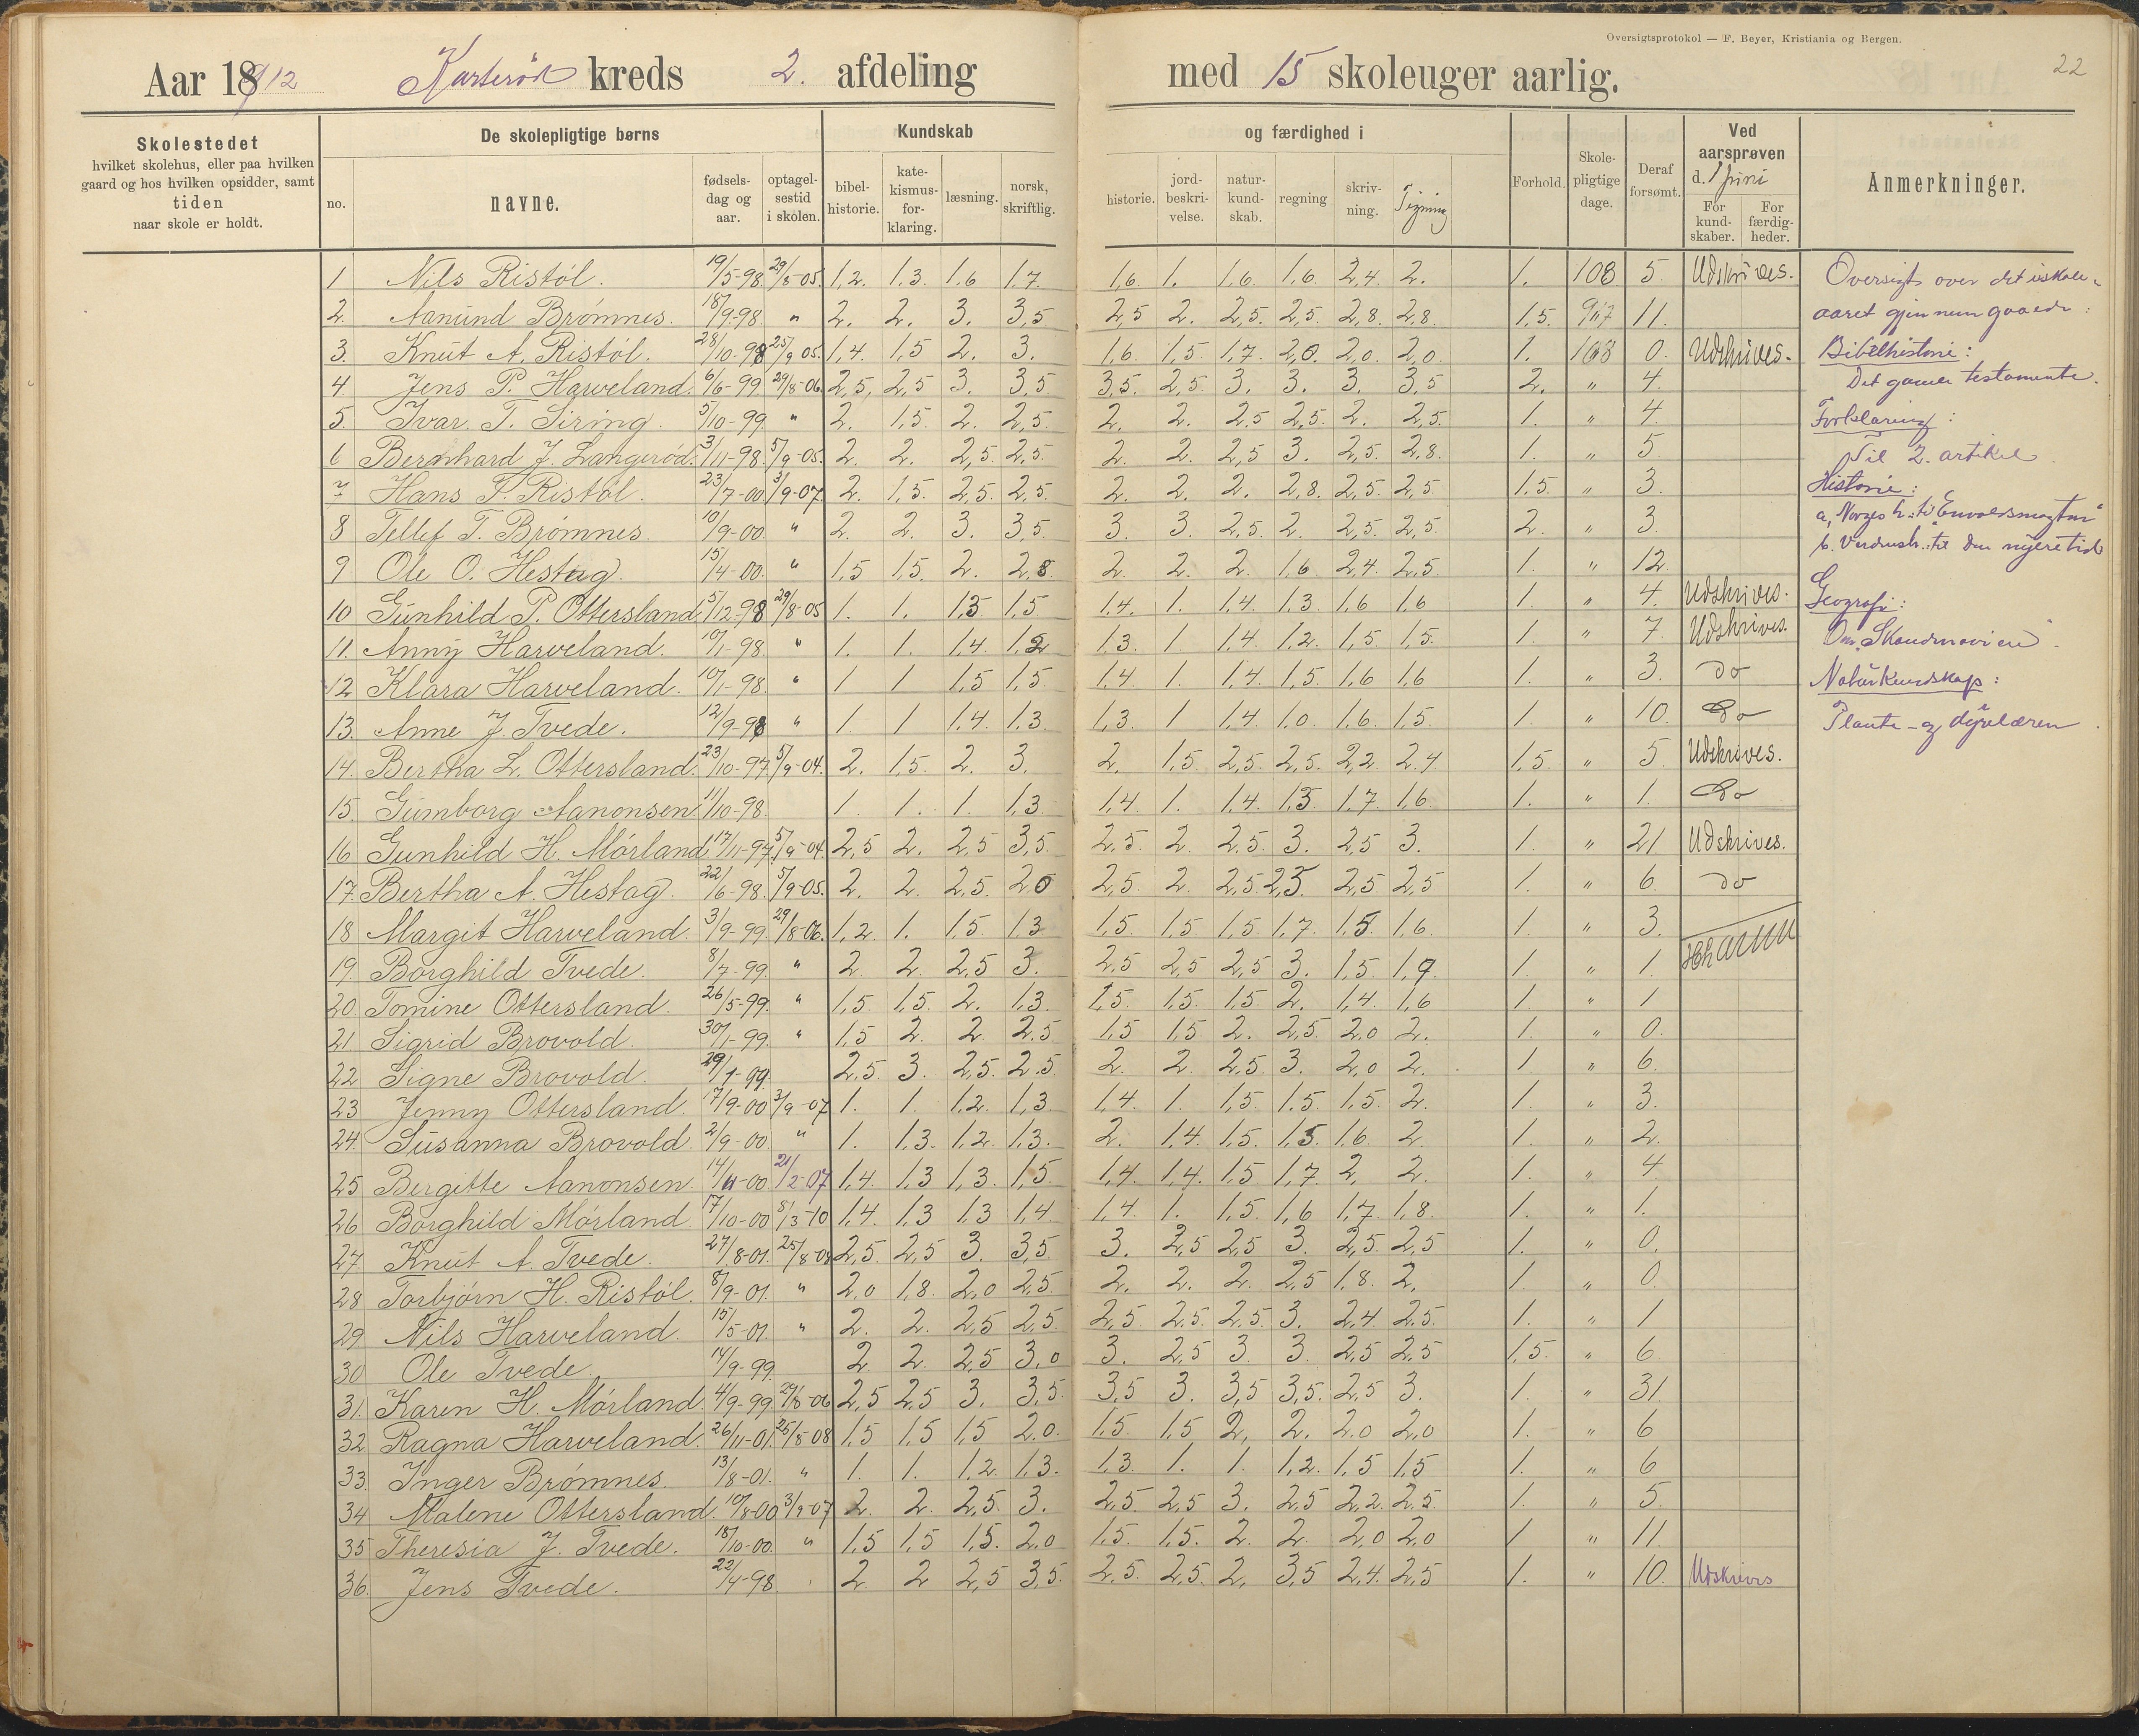 Oversigtsprotokol — F. Beyer, Kristiania og Bergen.
22
Aar 1912 kreds 2. afdeling med 15 skoleuger aarlig.
Skolestedet
hvilket skolehus, eller paa hvilken
gaard og hos hvilken opsidder, samt
tiden
naar skole er holdt.
De skolepligtige børns
no. navne. fødsels-dag og aar. optagel-sestid i skolen.
Kundskab og færdighed i
bibel-historie. kate-kismus-for-klaring. læsning. norsk, skriftlig. historie. jord-beskri-velse. natur-kund-skab. regning skriv-ning. Tegning
Forhold. Skole-pligtige dage. Deraf forsømt.
Ved aarsprøven d. 1 juni
For kund-skaber. For færdig-heder.
Anmerkninger.
1 Nils Ristöl. 19/5-98 29/8-05 1,2. 1,3. 1,6 1,7. 1,6. 1. 1,6 1,6. 2,4 2. 1. 108 5. Udskrives.
2. Aanund Brömnes. 18/9-98. " 2. 2. 3. 3,5 2,5 2. 2,5. 2,5. 2,8. 2,8. 1,5. 11.
3. Knut A. Ristöl. 28/10-98 25/9 05. 1,4. 1,5 2. 3. 1,6. 1,5 1,7. 2,0. 2,0. 2,0. 1. 108 0. Udskrives.
4. Jens P. Harveland. 6/6-99. 29/8-06 2,5, 2,5 3. 3,5 3,5. 2,5. 3. 3. 3. 3,5 2. " 4.
5. Ivar T. Siring. 5/10-99 " 2. 1,5. 2. 2,5. 2. 2. 2,5 2,5. 2. 2,5. 1. " 4.
6 Bernhard J. Langeröd. 3/11-98. 5/9-05. 2. 2. 2,5. 2,5. 2. 2. 2,5 3. 2,5. 2,8. 1. " 5.
7 Hans T. Ristöl. 23/7-00. 3/9-07. 2. 1,5. 2,5. 2,5. 2. 2. 2. 2,8. 2,5. 2,5 1,5. " 3.
8 Tellef T. Brömnes. 10/9-00. " 2. 2. 3. 3,5. 3. 3. 2,5. 2. 2,5. 2,5. 2. " 3.
9 Ole O. Hestag. 15/4-00. " 1,5 1,5. 2. 2,8. 2. 2. 2. 1,6 2,4. 2,5. 1. " 12
10 Gunhild P. Ottersland 5/12-98 29/8-05 1. 1. 1,3 1,5 1,4. 1. 1,4. 1,3 1,6 1,6 1. " 4. Udskrives.
11. Anny Harveland. 10/1-98. " 1. 1. 1,4. 1,2 1,3. 1 1,4. 1,2. 1,5. 1,5. 1. " 7. Udskrives.
12 Klara Harveland. 10/1-98. " 1 1 1,5 1,5. 1,4 1. 1,4. 1,5. 1,6 1,6 1. " 3. do
13. Anne J. Tvede. 12/9-98 " 1. 1 1,4. 1,3. 1,3. 1 1,4. 1,0. 1,6. 1,5. 1. " 10. Do
14. Bertha L. Ottersland. 23/10-97. 5/9-04. 2. 1,5. 2. 3. 2. 1,5 2,5. 2,5. 2,2. 2,4 1,5. " 5. Udskrives.
15. Gumborg Aanonsen 11/10-98. 1. 1. 1. 1,3 1,4 1. 1,4. 1,3. 1,7. 1,6. 1. " 1. Do
16 Gunhild H. Mörland 17/11-97. 5/9-04. 2,5 2. 2,5 3,5. 2,5. 2. 2,5. 3. 2,5 3. 1. " 21 Udskrives.
17. Bertha A. Hestag. 22/6-98. 5/9-05. 2. 2. 2,5. 2,0 2,5. 2. 2,5. 2,5. 2,5 2,5 1. " 6. do
18 Margit Harveland. 3/9-99. 29/8-06. 1,2. 1. 1,5. 1,3 1,5 1,5 1,5 1,7. 1,5. 1,6. 1. " 3.
19. Borghild Tvede. 8/7-99. " 2. 2. 2,5 3. 2,5 2,5 2,5 3. 1,5 1,9. 1. " 1.
20 Tomine Ottersland. 26/5-99. " 1,5. 1,5. 2. 1,3. 1,5. 1,5. 1,5 2. 1,4. 1,6 1. " 1
21 Sigrid Brovold. 30/1-99. " 1,5 2. 2. 2,5. 1,5 1,5 2. 2,5 2,0 2. 1. " 0.
22 Signe Brovold. 29/1-99. 2,5. 3. 2,5. 2,5. 2. 2. 2,5. 3. 2,0 2. 1 " 6.
23 Jenny Ottersland. 7/9-00 3/9-07 1. 1. 1,2. 1,3. 1,4. 1. 1,5 1,5. 1,5 2. 1. " 3.
24. Susanna Brovold. 2/9-00 " 1. 1,3. 1,2. 1,3. 2. 1,4. 1,5. 1,5. 1,6. 2. 1. " 2.
25 Bergitte Aanonsen. 14/11-00. 21/2-07 1,4. 1,3 1,3. 1,5. 1,4. 1,4. 1,5 1,7. 2. 2. 1. " 4.
26 Borghild Mörland 17/10-00 8/3-10 1,4. 1,3 1,3 1,4 1,4. 1. 1,5 1,6 1,7. 1,8. 1. " 1.
27 Knut A. Tvede. 27/8-01. 25/8-08 2,5. 2,5 3. 3,5. 3. 2,5 2,5 3. 2,5. 2,5 1. " 0.
28 Torbjörn H. Ristöl. 8/9-01. " 2,0 1,8. 2,0 2,5. 2. 2. 2. 2,5 1,8. 2. 1 " 0.
29. Nils Harveland. 15/5-01. " 2. 2. 2,5 2,5. 2,5 2,5. 2,5. 3. 2,4. 2,5. 1. " 1
30 Ole Tvede. 14/9-99. 2. 2. 2,5 3,0 3. 2,5 3. 3. 2,5 2,5 1,5. " 6
31. Karen H. Mörland. 4/9-99. 29/8-06 2,5 2,5 3. 3,5. 3,5 3. 3,5 3,5. 2,5 3. 1. " 31.
32 Ragna Harveland. 26/11-01. 25/8-08 1,5 1,5 1,5 2,0. 1,5. 1,5 2, 2. 2,0 2,0 1. " 6
33. Inger Brömnes. 13/8-01. " 1. 1. 1,2. 1,3. 1,3. 1. 1. 1,2. 1,5 1,5 1. " 6
34 Malene Ottersland. 10/8-00 3/9-07 2. 2. 2,5. 3. 2,5. 2,5 3. 2,5 2,2. 2,5. 1. " 5.
35 Theresia J. Tvede. 18/10-00. " 1,5 1,5 1,5. 2,0 1,5. 1,5. 2. 2. 2,0 2,0 1 " 11.
36. Jens Tvede. 22/4-98 2 2 2,5 3,5. 2,5. 2,5. 2, 3,5 2,4. 2,5 1. " 10. Udskrives
Oversigt over det i skole-
aaret gjennemgaaede:
Bibelhistorie:
Det gamle testamente.
Forklaring:
Til 2. artikel.
Historie:
a, Norges h. til Enevoldsmagten
b. Verdensh. til den nyere tid
Geografi:
Om Skandinavien.
Naturkundskap:
Plante- og dyrelæren.